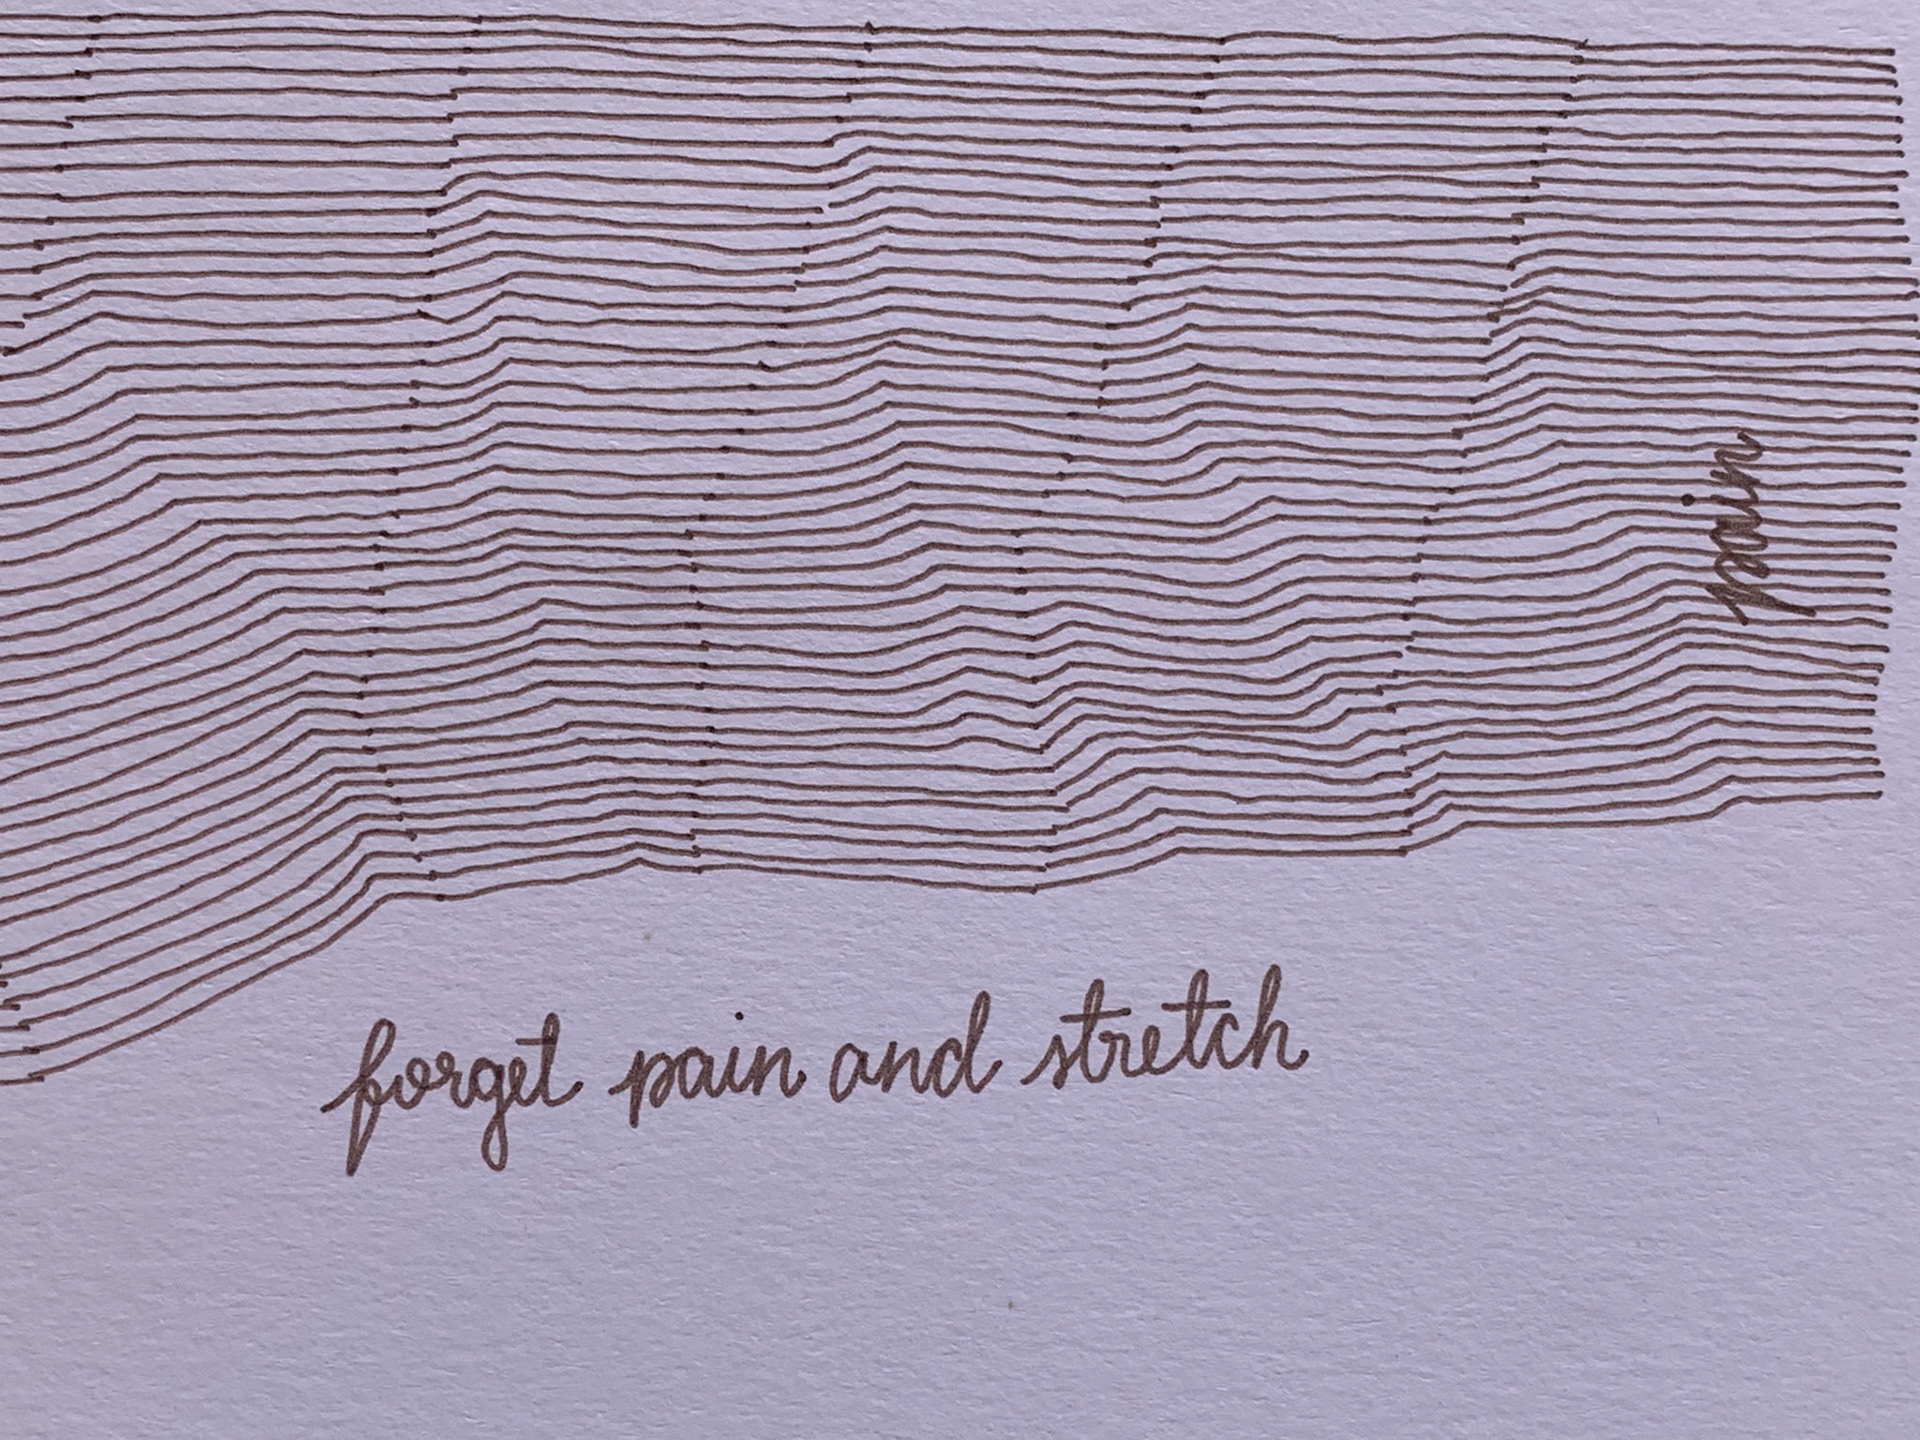 pain
forget pain and stretch